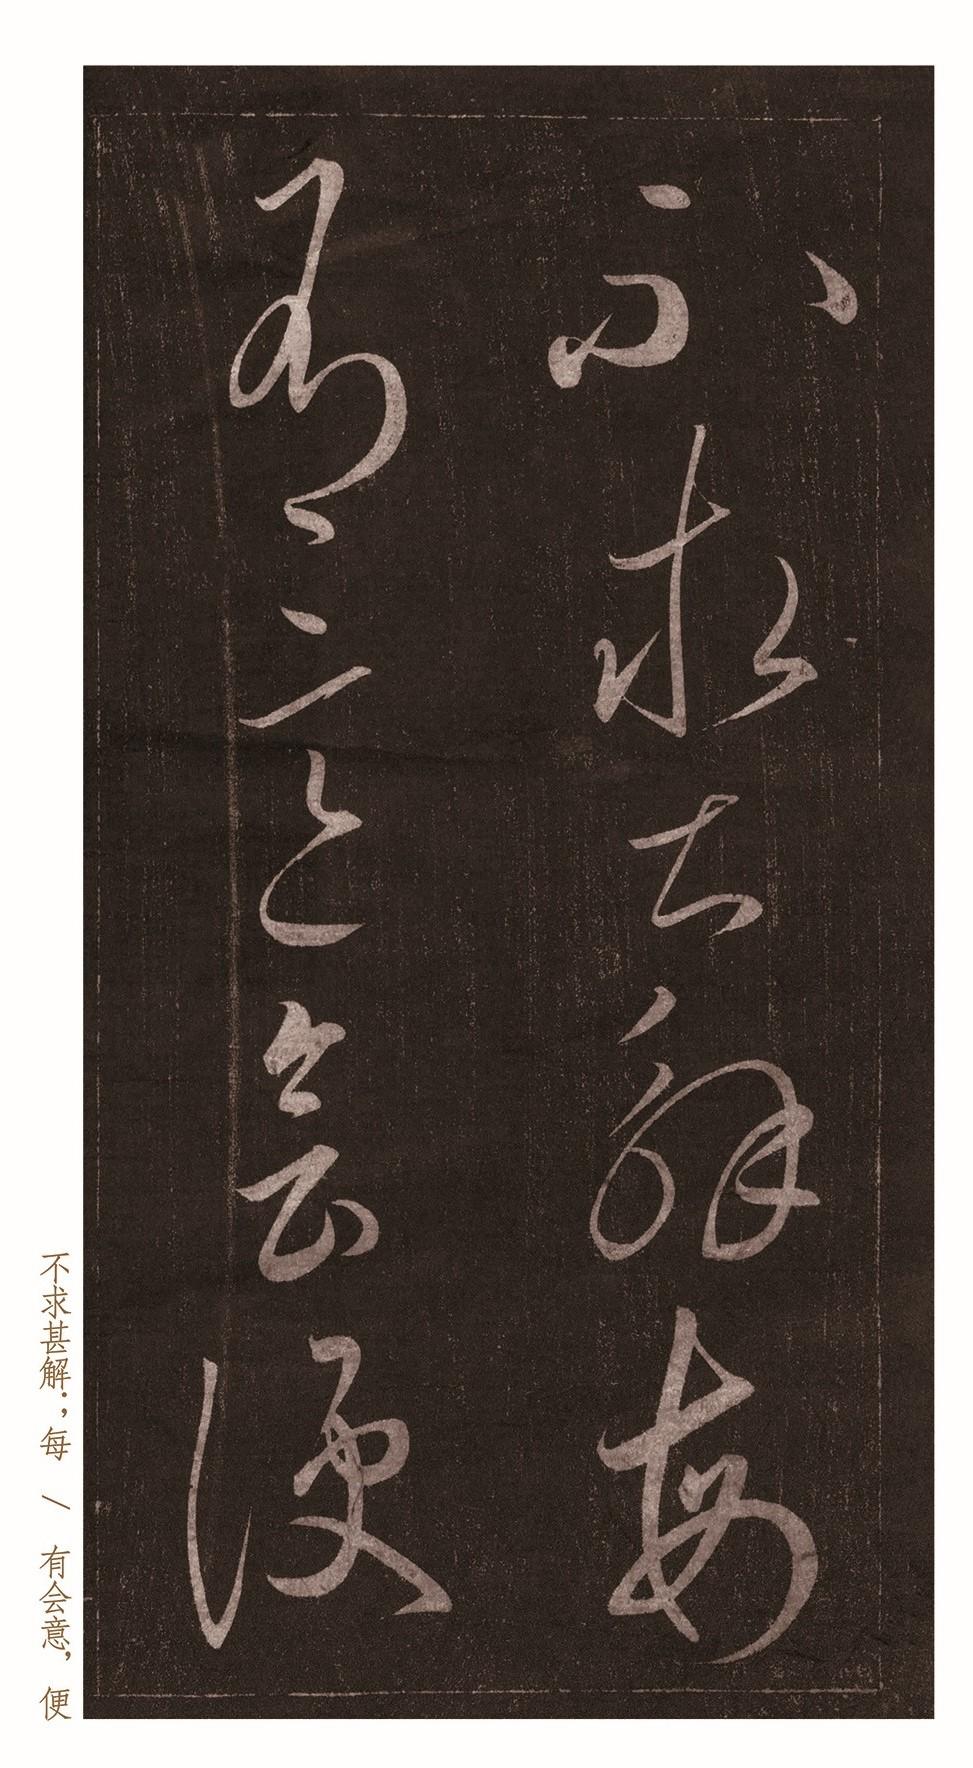 不求甚解每
有意會便
不求甚解:,每 / 有会意,便